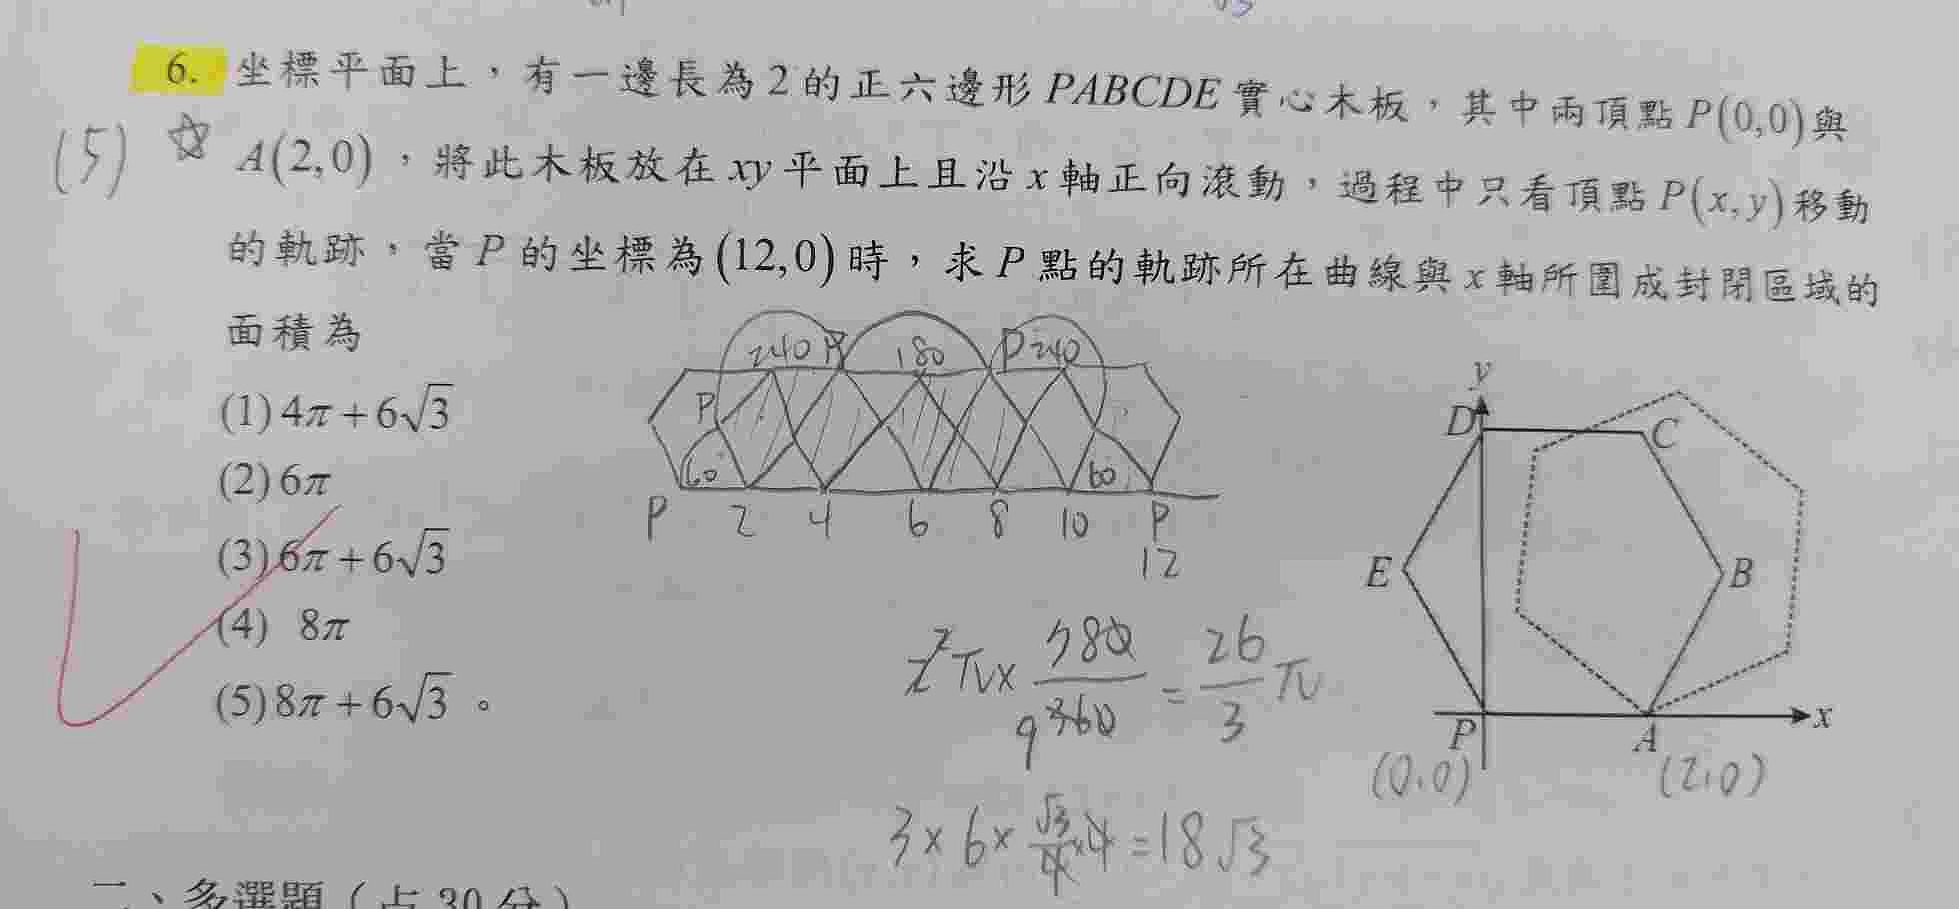 6. 坐標平面上，有一邊長為2的正六邊形PABCDE實心木板，其中兩頂點P(0,0)與
(5) ☆ A(2,0)，將此木板放在xy平面上且沿x軸正向滾動，過程中只看頂點P(x,y)移動
的軌跡，當P的坐標為(12,0)時，求P點的軌跡所在曲線與x軸所圍成封閉區域的
面積為
(1) 4π+6√3
(2) 6π
(3) 6π+6√3
(4) 8π
(5) 8π+6√3。
240 P 180 P 240
P
60 60
P 2 4 6 8 10 P
12
y
D C
E B
P A x
(0,0) (2,0)
2²π× 780/360 = 26/3 π
9
3×6×√3/4×4=18√3
二、多選題（占30分）